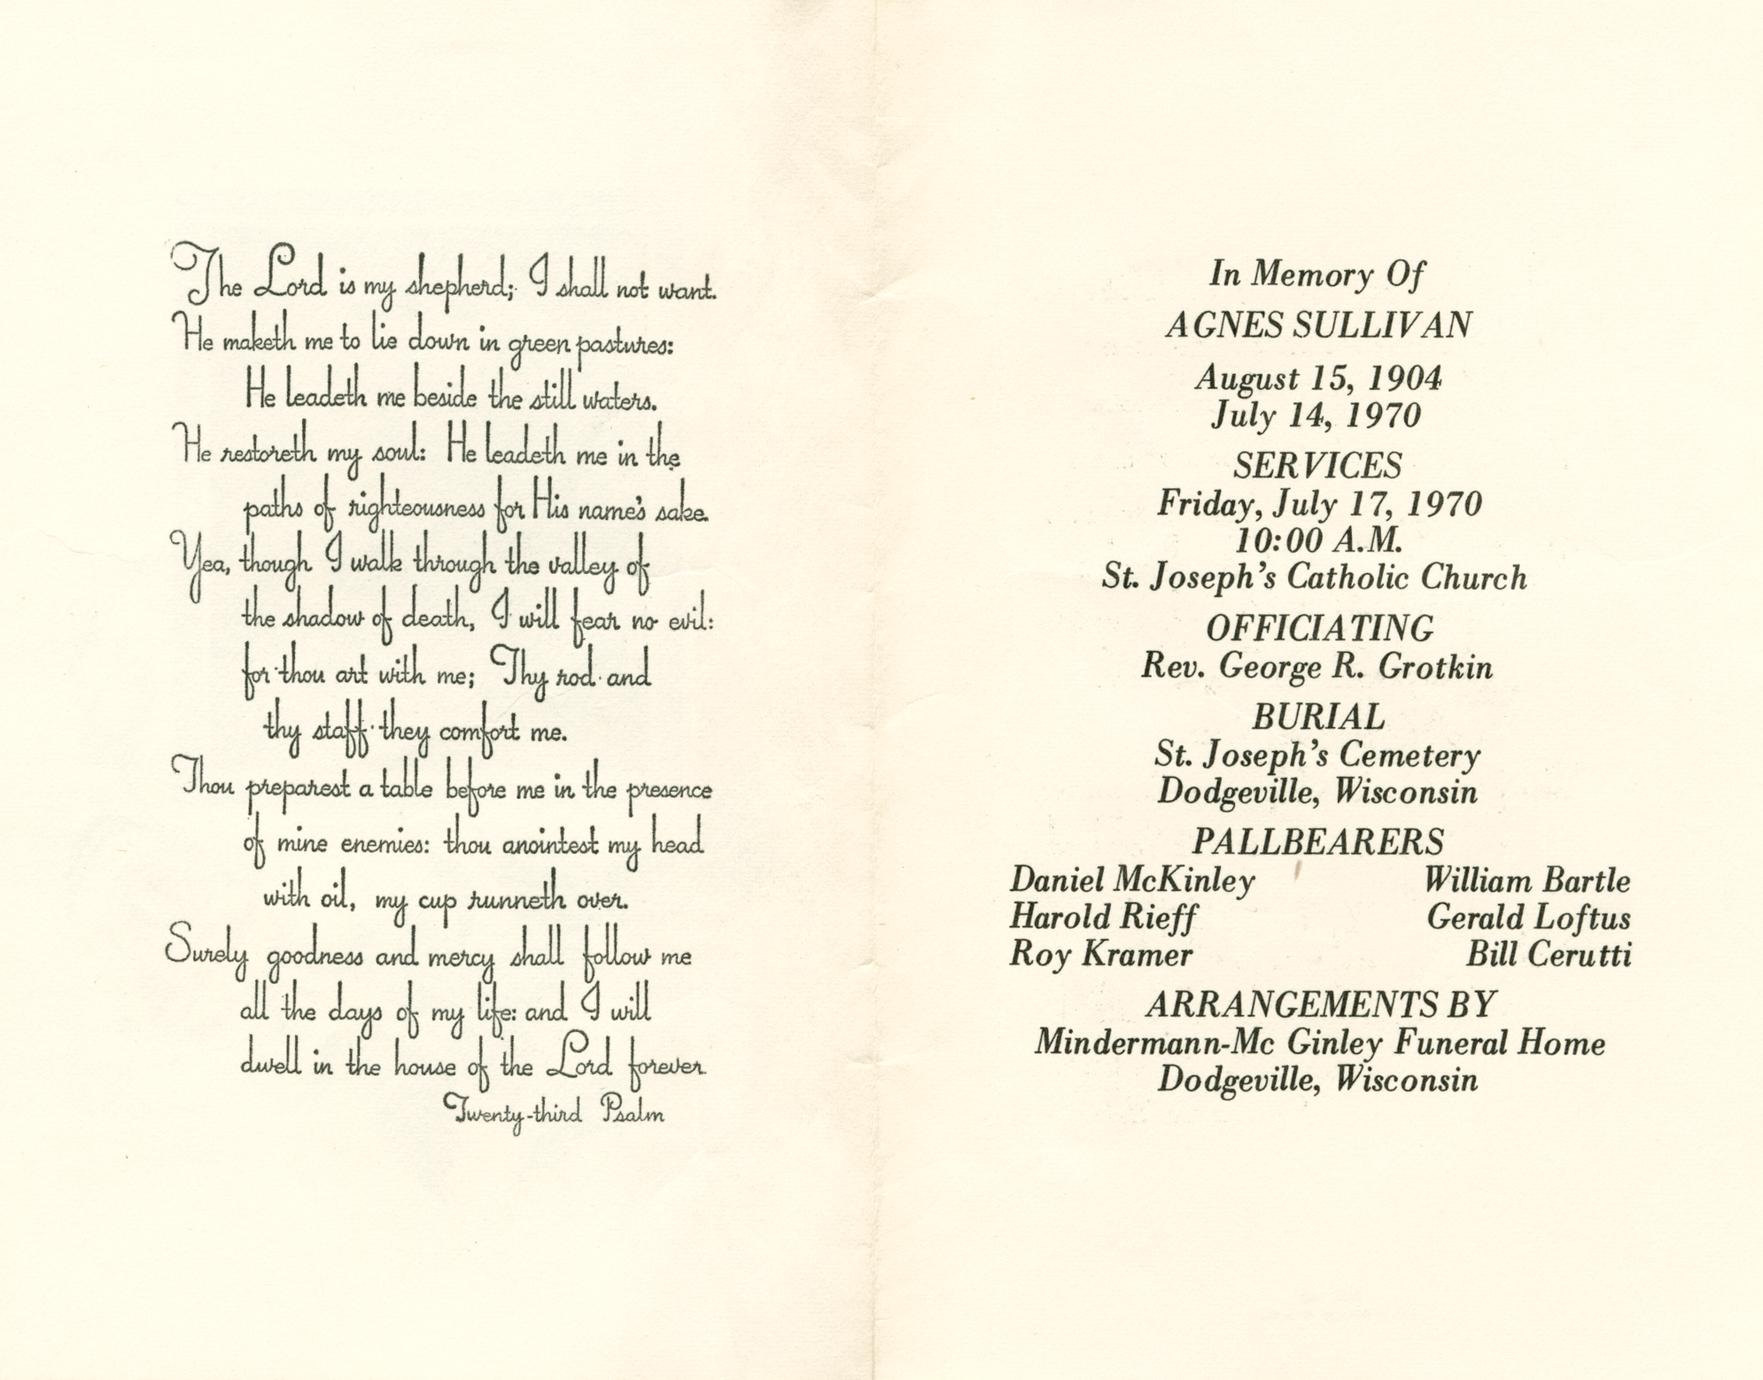 The Lord is my shepherd; I shall not want.
He maketh me to lie down in green pastures:
He leadeth me beside the still waters.
He restoreth my soul: He leadeth me in the
paths of righteousness for His name's sake.
Yea, though I walk through the valley of
the shadow of death, I will fear no evil:
for thou art with me; Thy rod and
thy staff they comfort me.
Thou preparest a table before me in the presence
of mine enemies: thou anointest my head
with oil, my cup runneth over.
Surely goodness and mercy shall follow me
all the days of my life: and I will
dwell in the house of the Lord forever.
Twenty-third Psalm
In Memory Of
AGNES SULLIVAN
August 15, 1904
July 14, 1970
SERVICES
Friday, July 17, 1970
10:00 A.M.
St. Joseph's Catholic Church
OFFICIATING
Rev. George R. Grotkin
BURIAL
St. Joseph's Cemetery
Dodgeville, Wisconsin
PALLBEARERS
Daniel McKinley William Bartle
Harold Rieff Gerald Loftus
Roy Kramer Bill Cerutti
ARRANGEMENTS BY
Mindermann-Mc Ginley Funeral Home
Dodgeville, Wisconsin